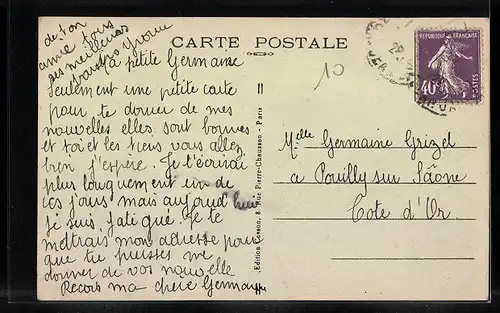 CARTE POSTALE
10
REPUBLIQUE FRANÇAISE
40c
POSTES
Ma petite Germaine
Seulement une petite carte
pour te donner de mes
nouvelles elles sont bonnes
et toi et les tiens vous allez
bien j'espère. Je t'écrirai
plus longuement un de
ces jours mais aujourd'hui
je suis fatiguée. Je te
mettrais mon adresse pour
que tu puisses me
donner de vos nouvelle
Recois ma chère Germaine
de ton
amie Yvonne
ses meilleurs
baisers Yvonne
II
Edition Rosson, 8, Rue Pierre-Chausson - Paris
Melle Germaine Grizel
a Pouilly sur Saône
Cote d'Or